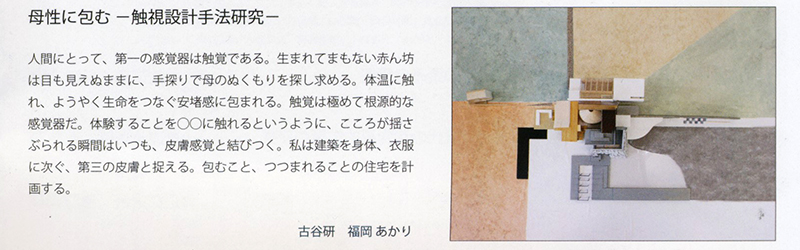 母性に包む －触視設計手法研究－
人間にとって、第一の感覚器は触覚である。生まれてまもない赤ん坊
は目も見えぬままに、手探りで母のぬくもりを探し求める。体温に触
れ、ようやく生命をつなぐ安堵感に包まれる。触覚は極めて根源的な
感覚器だ。体験することを〇〇に触れるというように、こころが揺さ
ぶられる瞬間はいつも、皮膚感覚と結びつく。私は建築を身体、衣服
に次ぐ、第三の皮膚と捉える。包むこと、つつまれることの住宅を計
画する。
古谷研　福岡 あかり